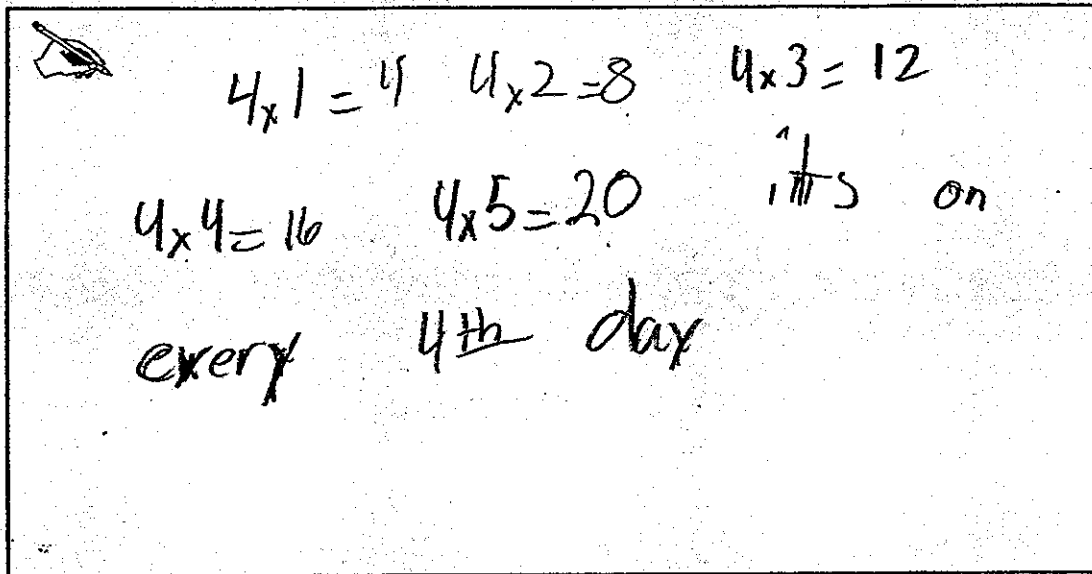 4x1=4 4x2=8 4x3=12
4x4=16 4x5=20 its on
every 4th day